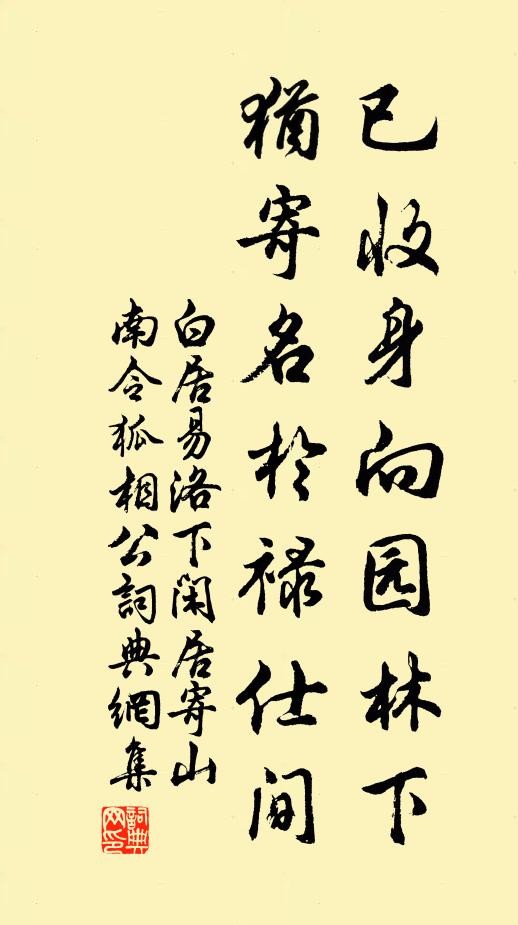 已收身向园林下
猶寄名於禄仕间
白居易洛下闲居寄山
南令狐相公詞典網集
詞典網印